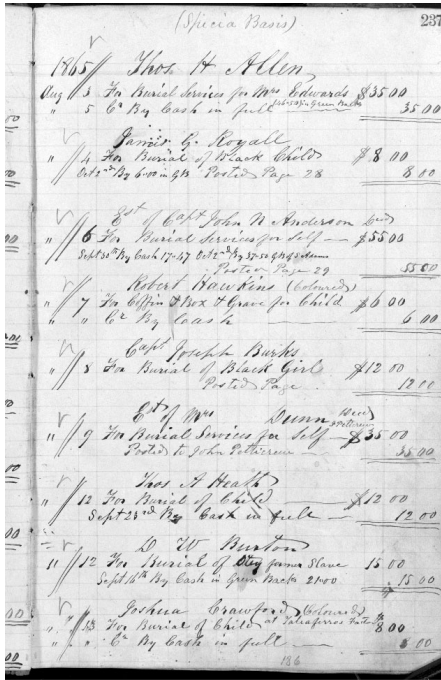 (Specia Basis)
237
1865 Thos. H Allen
Aug 3 For Burial Services for Mrs Edwards $35.00
" 5 Cr By Cash in full $46.50 in Green Backs 35 00
James G. Royall
" 4 For Burial of Black Child $8 00
Oct 2nd By 6.00 in GB Posted Page 28 8 00
Est of Capt John N Anderson Decd
" 6 For Burial Services for Self — $55 00
Sept 30th By Cash 17.47 Oct 2nd By 37.53
Posted Page 29 55 00
Robert Hawkins (Coloured)
" 7 For Coffin & Box & Grave for Child $6 00
" " Cr By Cash — 6 00
Capt Joseph Burks
" 8 For Burial of Black Girl $12 00
Posted Page 12 00
Est of Mrs Dunn Decd
" 9 For Burial Services for Self — $35 00
Posted to John Pettiereu — 35 00
Thos A Heath
" 12 For Burial of Child — $12 00
Sept 23rd By Cash in full — 12 00
D W Burton
11 12 For Burial of former Slave 15.00
Sept 16th By Cash in Green Backs 21.00 15 00
Joshua Crawford (Coloured)
" 13 For Burial of Child at Taliaferros 8 00
" " Cr By Cash in full — 8 00
186